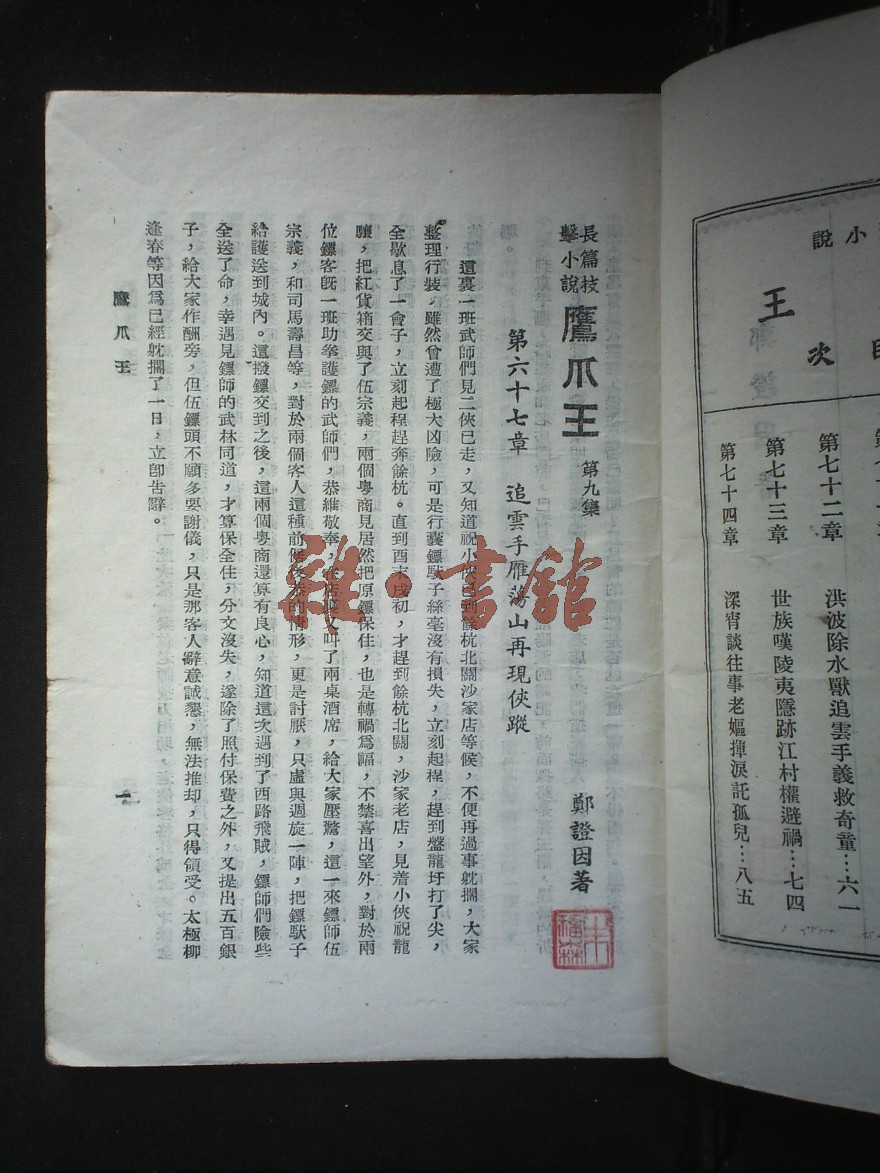 小說
王
目次
第七十二章 洪波除水獸追雲手義救奇童…六一
第七十三章 世族嘆陵夷隱跡江村權避禍…七四
第七十四章 深宵談往事老嫗揮淚託孤兒…八五
長篇技擊小說 鷹爪王 第九集
鄭證因著
第六十七章 追雲手雁蕩山再現俠蹤
這裏一班武師們見二俠已走，又知道祝小俠已到餘杭北關沙家店等候，不便再過事躭擱，大家
整理行裝，雖然曾遭了極大凶險，可是行囊鏢馱子絲毫沒有損失，立刻起程，趕到盤龍圩打了尖，
全歇息了一會子，立刻起程趕奔餘杭。直到酉末戌初，才趕到餘杭北關，沙家老店，見着小俠祝龍
驤，把紅貨箱交與了伍宗義，兩個粵商見居然把原鏢保住，也是轉禍爲福，不禁喜出望外，對於兩
位鏢客旣一班助拳護鏢的武師們，恭維敬奉，在店裏又叫了兩桌酒席，給大家壓驚，這一來鏢師伍
宗義，和司馬壽昌等，對於兩個客人這種前倨後恭的情形，更是討厭，只虛與週旋一陣，把鏢馱子
給護送到城內。這撥鏢交到之後，這兩個粵商還算有良心，知道這次遇到了西路飛賊，鏢師們險些
全送了命，幸遇見鏢師的武林同道，才算保全住，分文沒失，遂除了照付保費之外，又提出五百銀
子，給大家作酬旁，但伍鏢頭不願多要謝儀，只是那客人辭意誠懇，無法推却，只得領受。太極柳
逢春等因爲已經躭擱了一日，立卽告辭。
鷹爪王
一
雜·書館